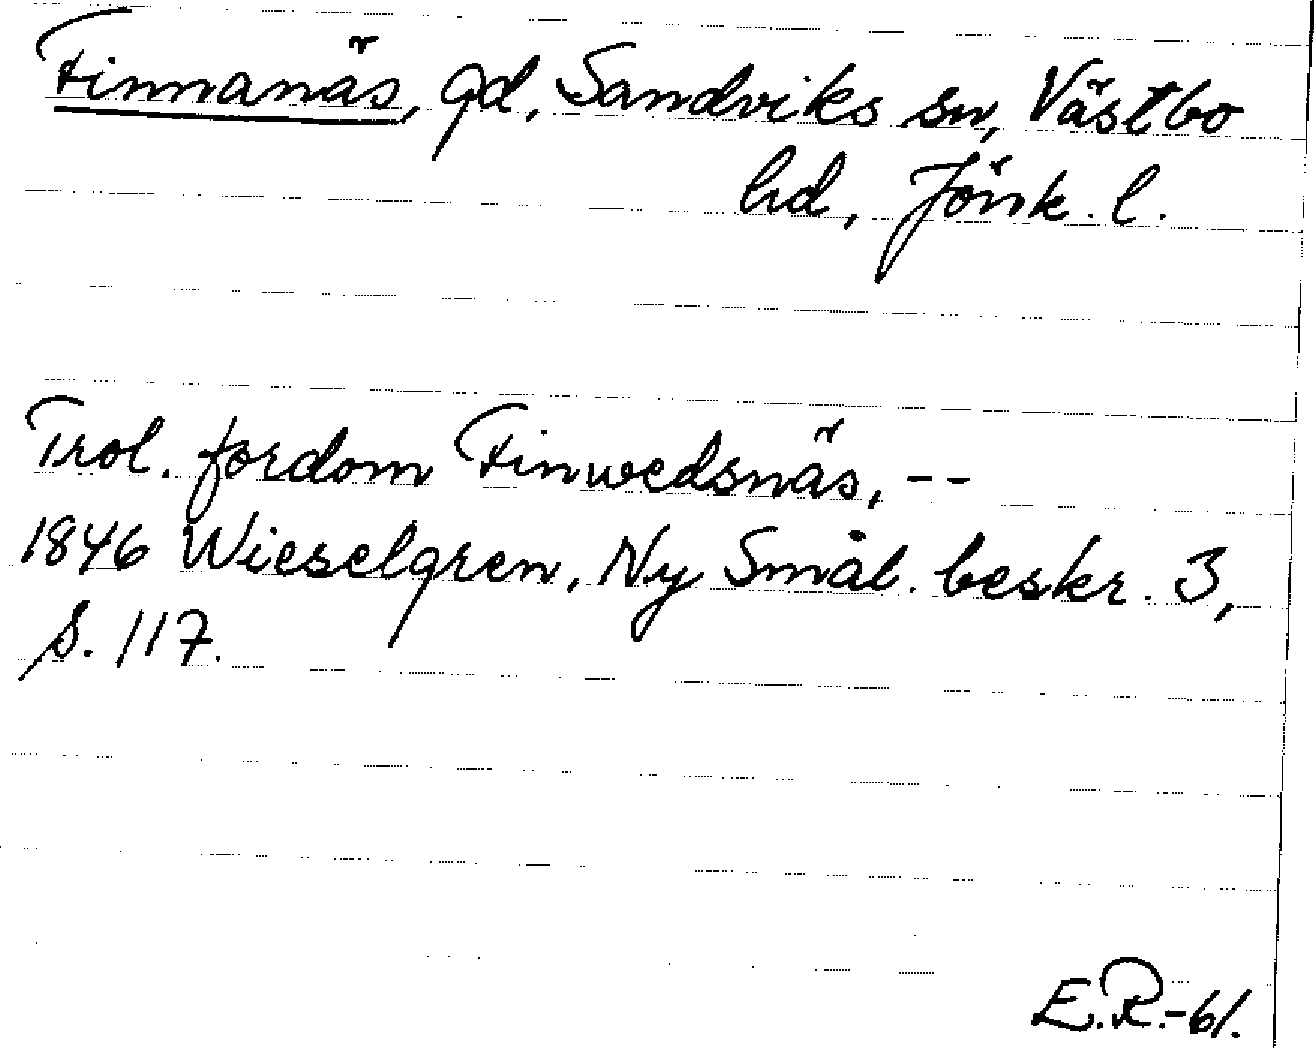 Finnanäs, gd, Sandviks sn, Västbo
hd, Jönk. l.
Trol. fordom Finwedsnäs, --
1846 Wieselgren, Ny Smål. beskr. 3,
s. 117.
E.R.-61.